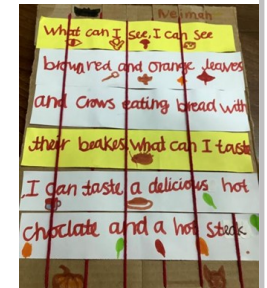 Neimah
What can I see, I can see
brown red and orange leaves
and crows eating bread with
their beakes, what can I taste
I can taste a delicious hot
choclate and a hot steak